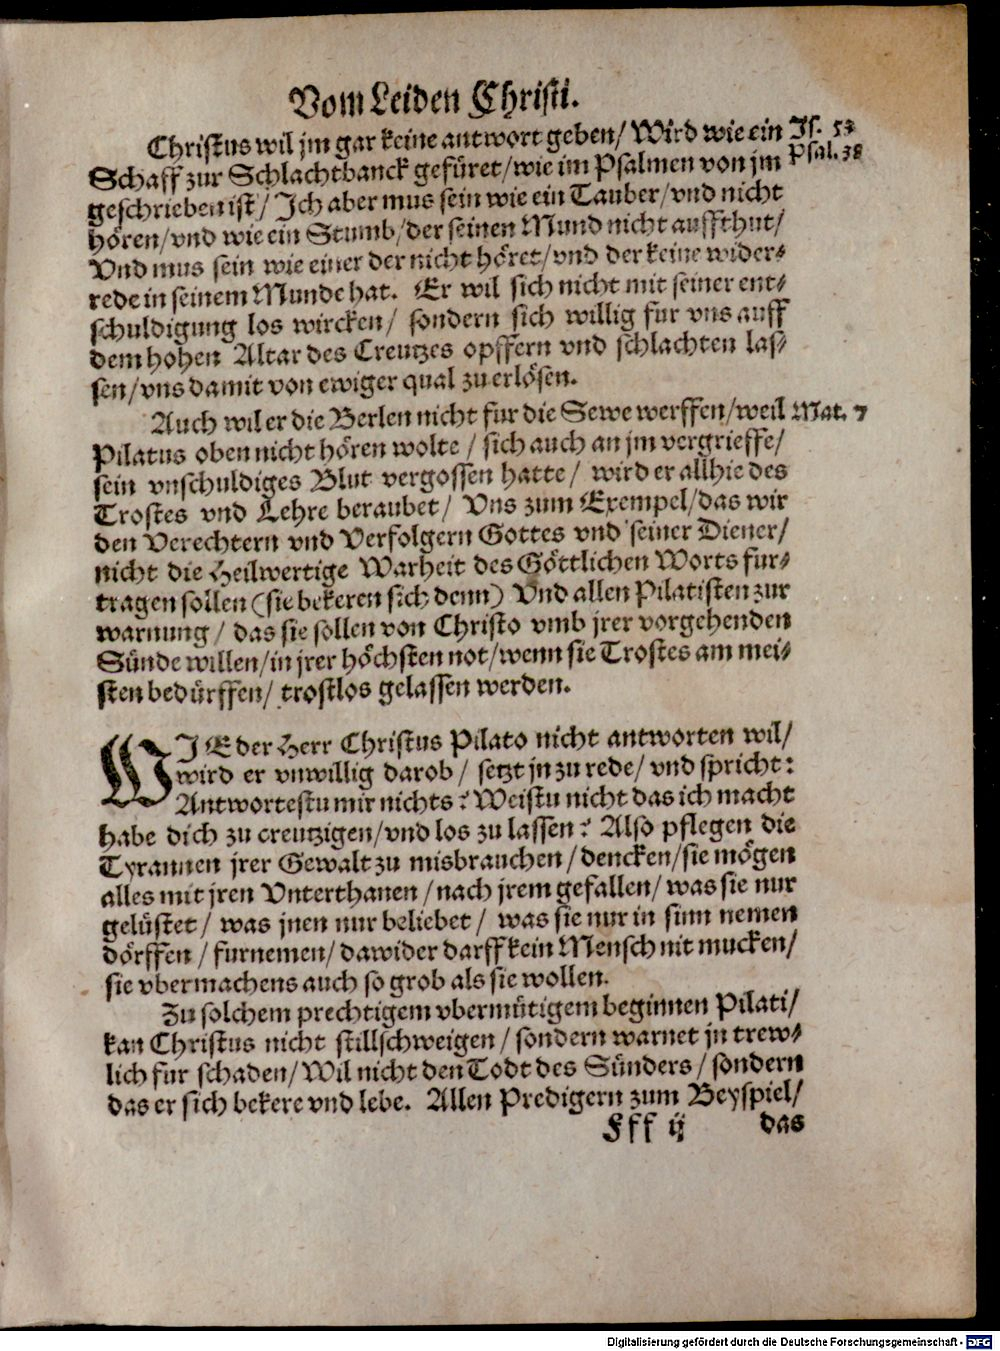 Vom Leiden Christi.
Christus wil jm gar keine antwort geben/ Wird wie ein Js. 53
Schaff zur Schlachtbanck gefüret/ wie im Psalmen von jm Psal. 38
geschrieben ist/ Jch aber mus sein wie ein Tauber/ vnd nicht
hören/ vnd wie ein Stumb/ der seinen Mund nicht auffthut/
Vnd mus sein wie einer der nicht höret/ vnd der keine wider-
rede in seinem Munde hat. Er wil sich nicht mit seiner ent-
schuldigung los wircken/ sondern sich willig fur vns auff
dem hohen Altar des Creutzes opffern vnd schlachten las-
sen/ vns damit von ewiger qual zu erlösen.
Auch wil er die Berlen nicht fur die Sewe werffen/ weil Mat. 7
Pilatus oben nicht hören wolte/ sich auch an jm vergrieffe/
sein vnschuldiges Blut vergossen hatte/ wird er allhie des
Trostes vnd Lehre beraubet/ Vns zum Exempel/ das wir
den Verechtern vnd Verfolgern Gottes vnd seiner Diener/
nicht die Heilwertige Warheit des Göttlichen Worts fur-
tragen sollen (sie bekeren sich denn) Vnd allen Pilatisten zur
warnung/ das sie sollen von Christo vmb jrer vorgehenden
Sünde willen/ in jrer höchsten not/ wenn sie Trostes am mei-
sten bedürffen/ trostlos gelassen werden.
WJE der Herr Christus Pilato nicht antworten wil/
wird er vnwillig darob/ setzt jn zu rede/ vnd spricht:
Antwortestu mir nichts? Weistu nicht das ich macht
habe dich zu creutzigen/ vnd los zu lassen? Also pflegen die
Tyrannen jrer Gewalt zu misbrauchen/ dencken/ sie mögen
alles mit jren Vnterthanen/ nach jrem gefallen/ was sie nur
gelüstet/ was jnen nur beliebet/ was sie nur in sinn nemen
dörffen/ furnemen/ dawider darff kein Mensch nit mucken/
sie vbermachens auch so grob als sie wollen.
Zu solchem prechtigem vbermütigem beginnen Pilati/
kan Christus nicht stillschweigen/ sondern warnet jn trew-
lich fur schaden/ Wil nicht den Todt des Sünders/ sondern
das er sich bekere vnd lebe. Allen Predigern zum Beyspiel/
Fff ij das
Digitalisierung gefördert durch die Deutsche Forschungsgemeinschaft - DFG